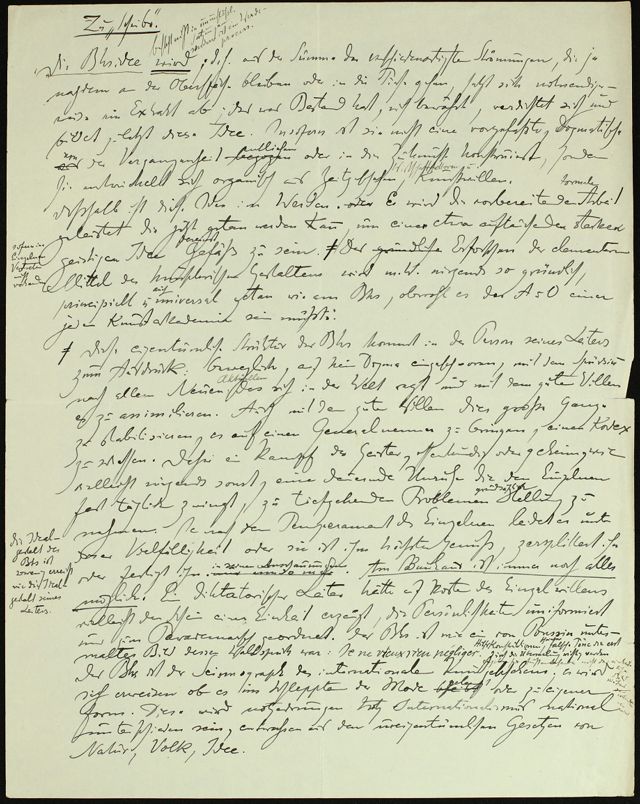 Zu "scheibe".
Die Bhsidee wird, d.h. aus der Summe der verschiedenartigsten Strömungen, die je
nachdem an der Oberfläche bleiben oder in die Tiefe gehen, setzt sich notwendiger-
weise ein Extrakt ab: das was Bestand hat, sich bewährt, verdichtet sich und
bildet zuletzt diese Idee. Insofern ist sie nicht eine vorgefasste, dogmatische
der Vergangenheit oder in die Zukunft konstruiert, sondern
sie entwickelt sich organisch aus Zeitgeschehen, Kunstwillen,
deshalb ist dies Neu im Werden. oder Es wird die vorbereitende Arbeit
geleistet die jetzt getan werden kann, um einer etwa auftauchenden starken
geistigen Idee Gefäss zu sein. ≠ Das gründliche Erforschen der elementaren
Mittel des künstlerischen Gestaltens wird m.W. nirgends so gründlich,
prinzipiell u. universal getan wie am Bhs, obwohl es das A + O einer
jeden Kunstakademie sein müsste.
≠ Diese eigentümliche Struktur des Bhs kommt in der Person seines Leiters
zum Ausdruck: beweglich, auf kein Dogma eingeschworen, mit dem Spürsinn
nach allem Neuen, Aktuellen das sich in der Welt regt und mit dem guten Willen
es zu assimilieren. Auch mit dem guten Willen dies grosse Ganze
zu stabilisieren, es auf einen Generalnenner zu bringen, einen Kodex
zu schaffen. Daher ein Kampf der Geister, offenkundig oder geheim, wie
vielleicht nirgends sonst, eine dauernde Unruhe die den Einzelnen
fast täglich zwingt, zu tiefgehenden Problemen grundsätzlich Stellung zu
nehmen. Je nach dem Temperament des Einzelnen leidet er unter
dieser Vielfältigkeit oder sie ist ihm höchster Genuss, zersplittert ihn
oder festigt ihn in seinen Anschauungen. Am Bauhaus ist immer noch alles
möglich. Ein diktatorischer Leiter hätte auf Kosten des Einzelwillens
vielleicht den Schein einer Einheit erzeugt, die Persönlichkeiten uniformiert
und im Parademarsch geordnet. Das Bhs ist wie ein von Poussin unter-
maltes Bild dessen Wahlspruch war: Je ne veux rien négliger.
Das Bhs ist der Seismograph des internationalen Kunstgeschehens; es wird
sich erweisen ob es im Schlepptau der Mode geht oder zu eigener
Form. Diese wird notgedrungen trotz Internationalismus national
unterschieden sein, entwachsen aus den ureigentümlichen Gesetzen von
Natur, Volk, Idee.
sofern im
Einzelnen
die Ideal-
gestalt des
Bhs ist
gestalt seines
Leiters.